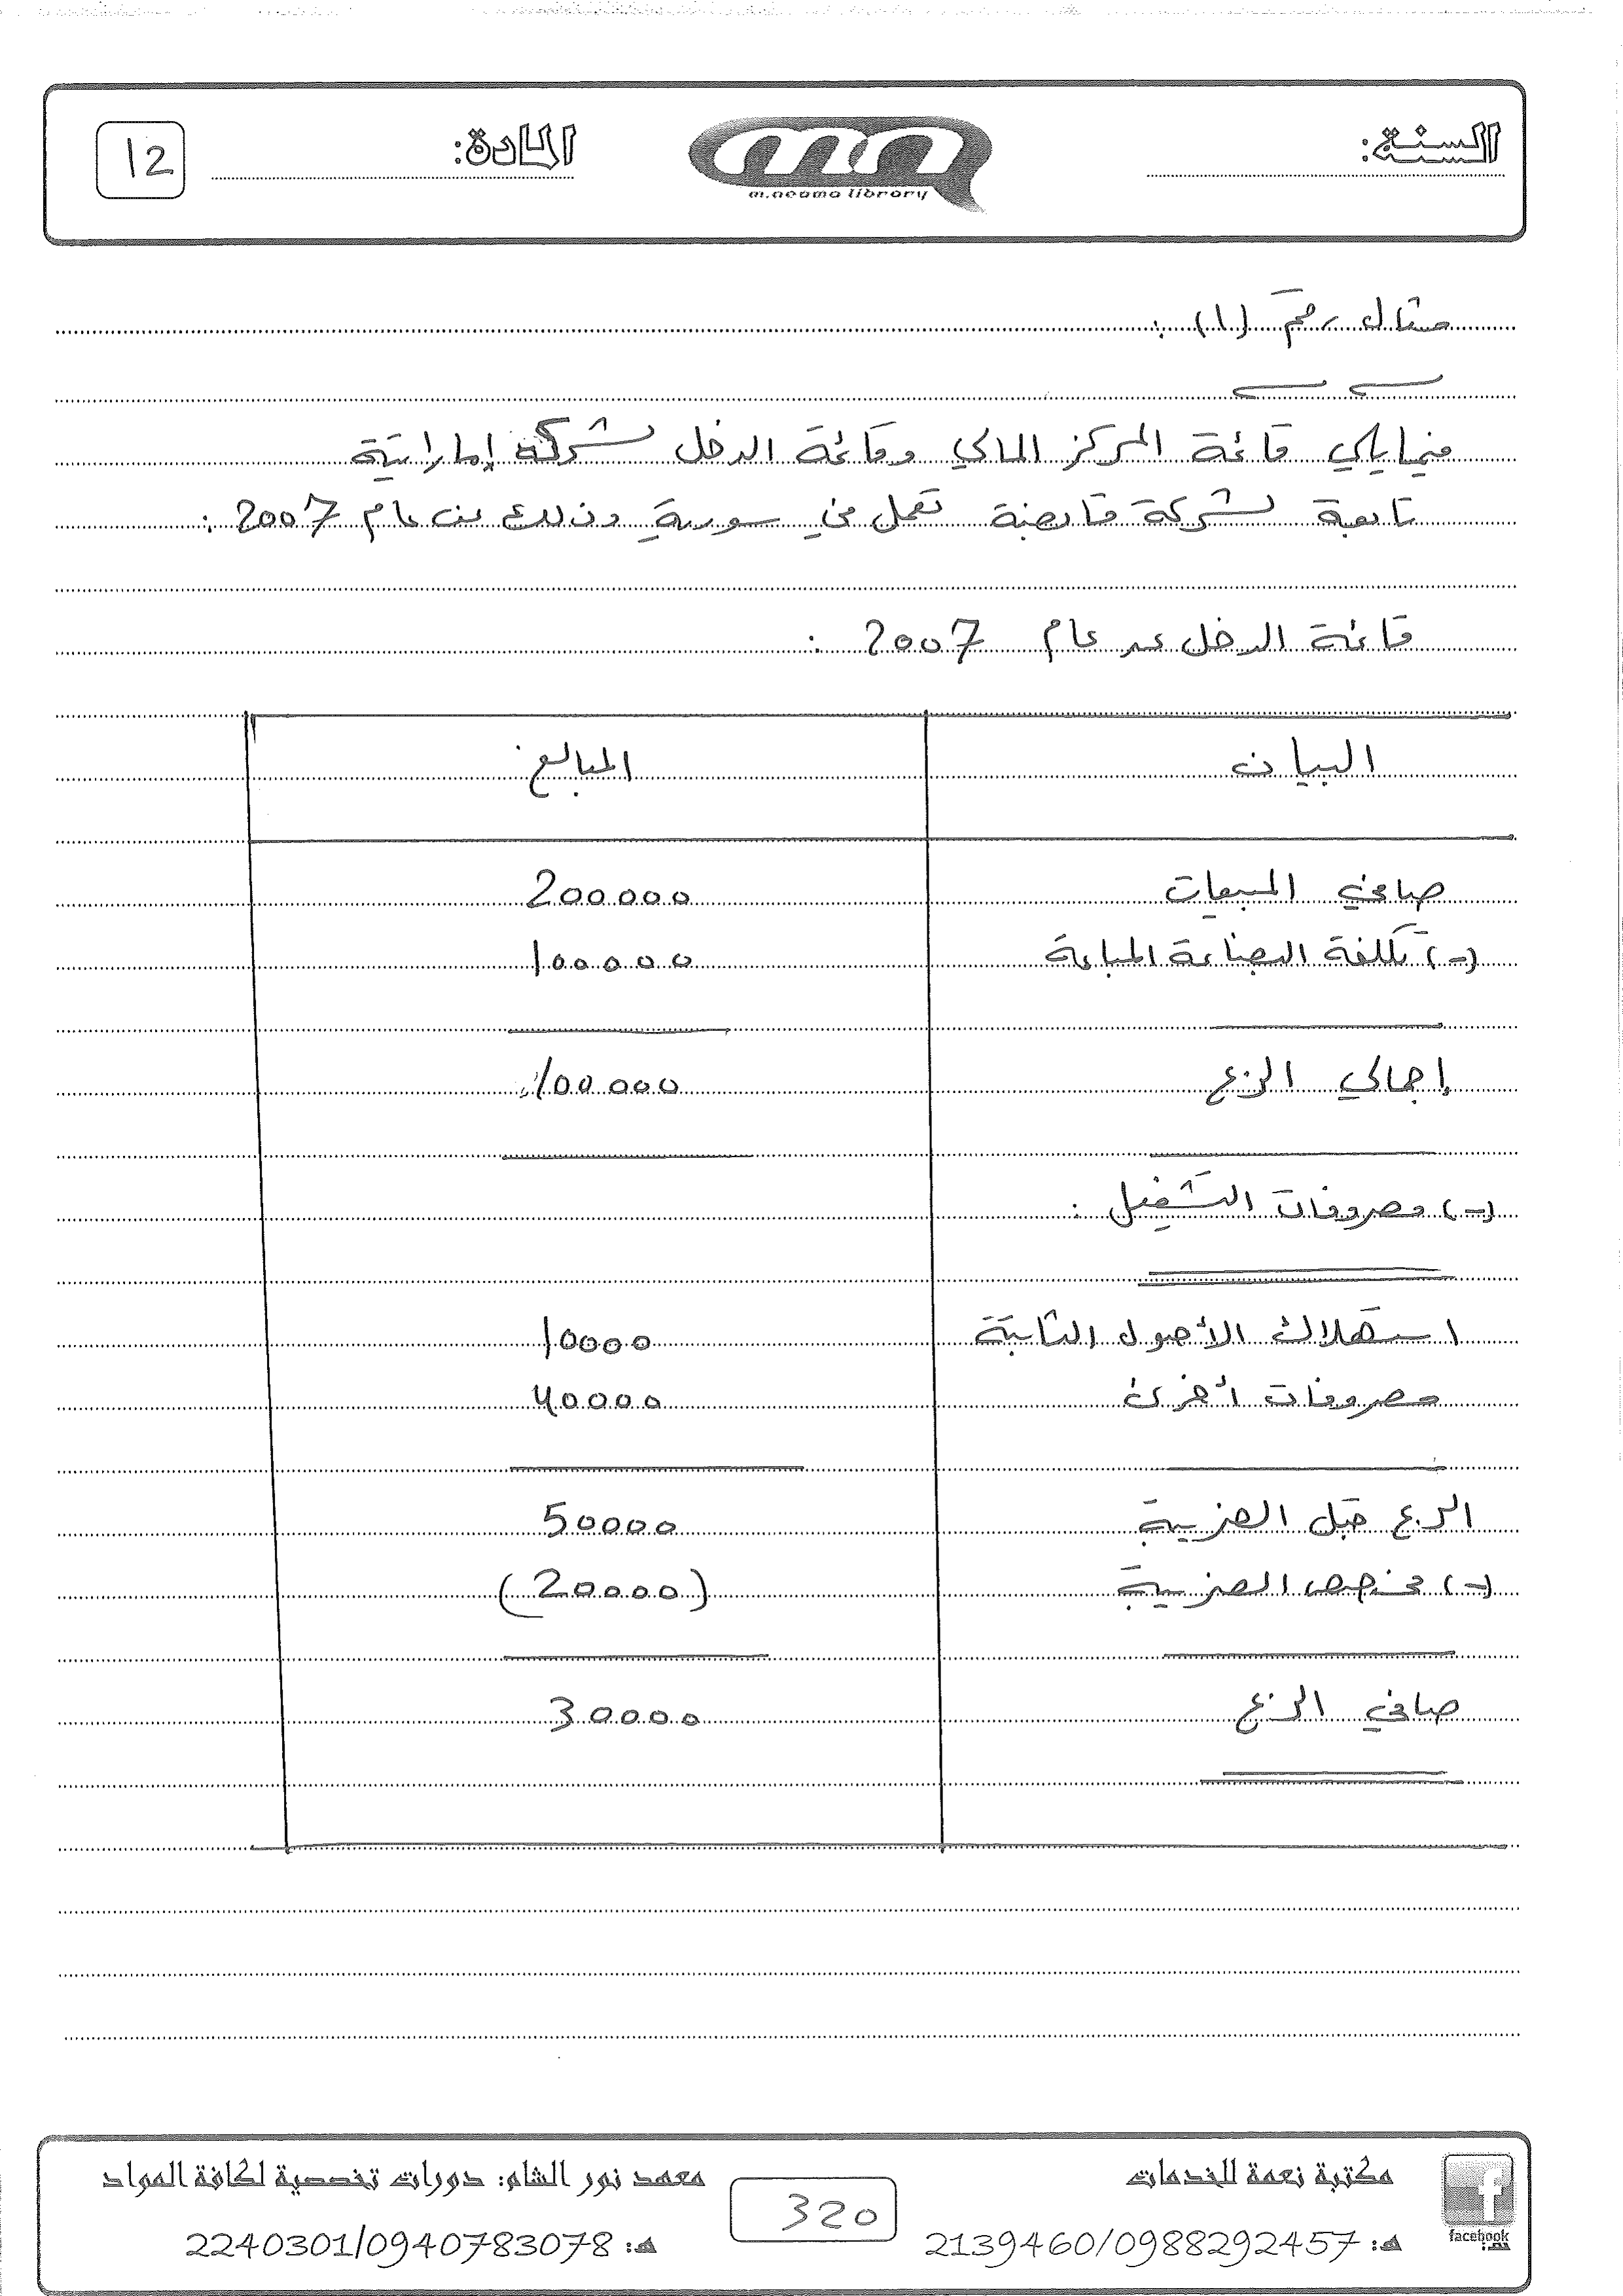 السنة:
m.neama library
المادة:
12
مثال رقم (1) :
فيما يلي قائمة المركز المالي وقائمة الدخل لشركة إماراتية
تابعة لشركة قابضة تعمل في سورية وذلك عن عام 2007 :
قائمة الدخل عن عام 2007 :
البيان المبالغ
صافي المبيعات 200000
(-) تكلفة البضاعة المباعة 100000
إجمالي الربح 100000
(-) مصروفات التشغيل :
استهلاك الأصول الثابتة 10000
مصروفات أخرى 40000
الربح قبل الضريبة 50000
(-) مخصص الضريبة (20000)
صافي الربح 30000
facebook
مكتبة نعمة للخدمات
هـ: 2139460/0988292457
320
معهد نور الشام: دورات تخصصية لكافة المواد
هـ: 2240301/0940783078